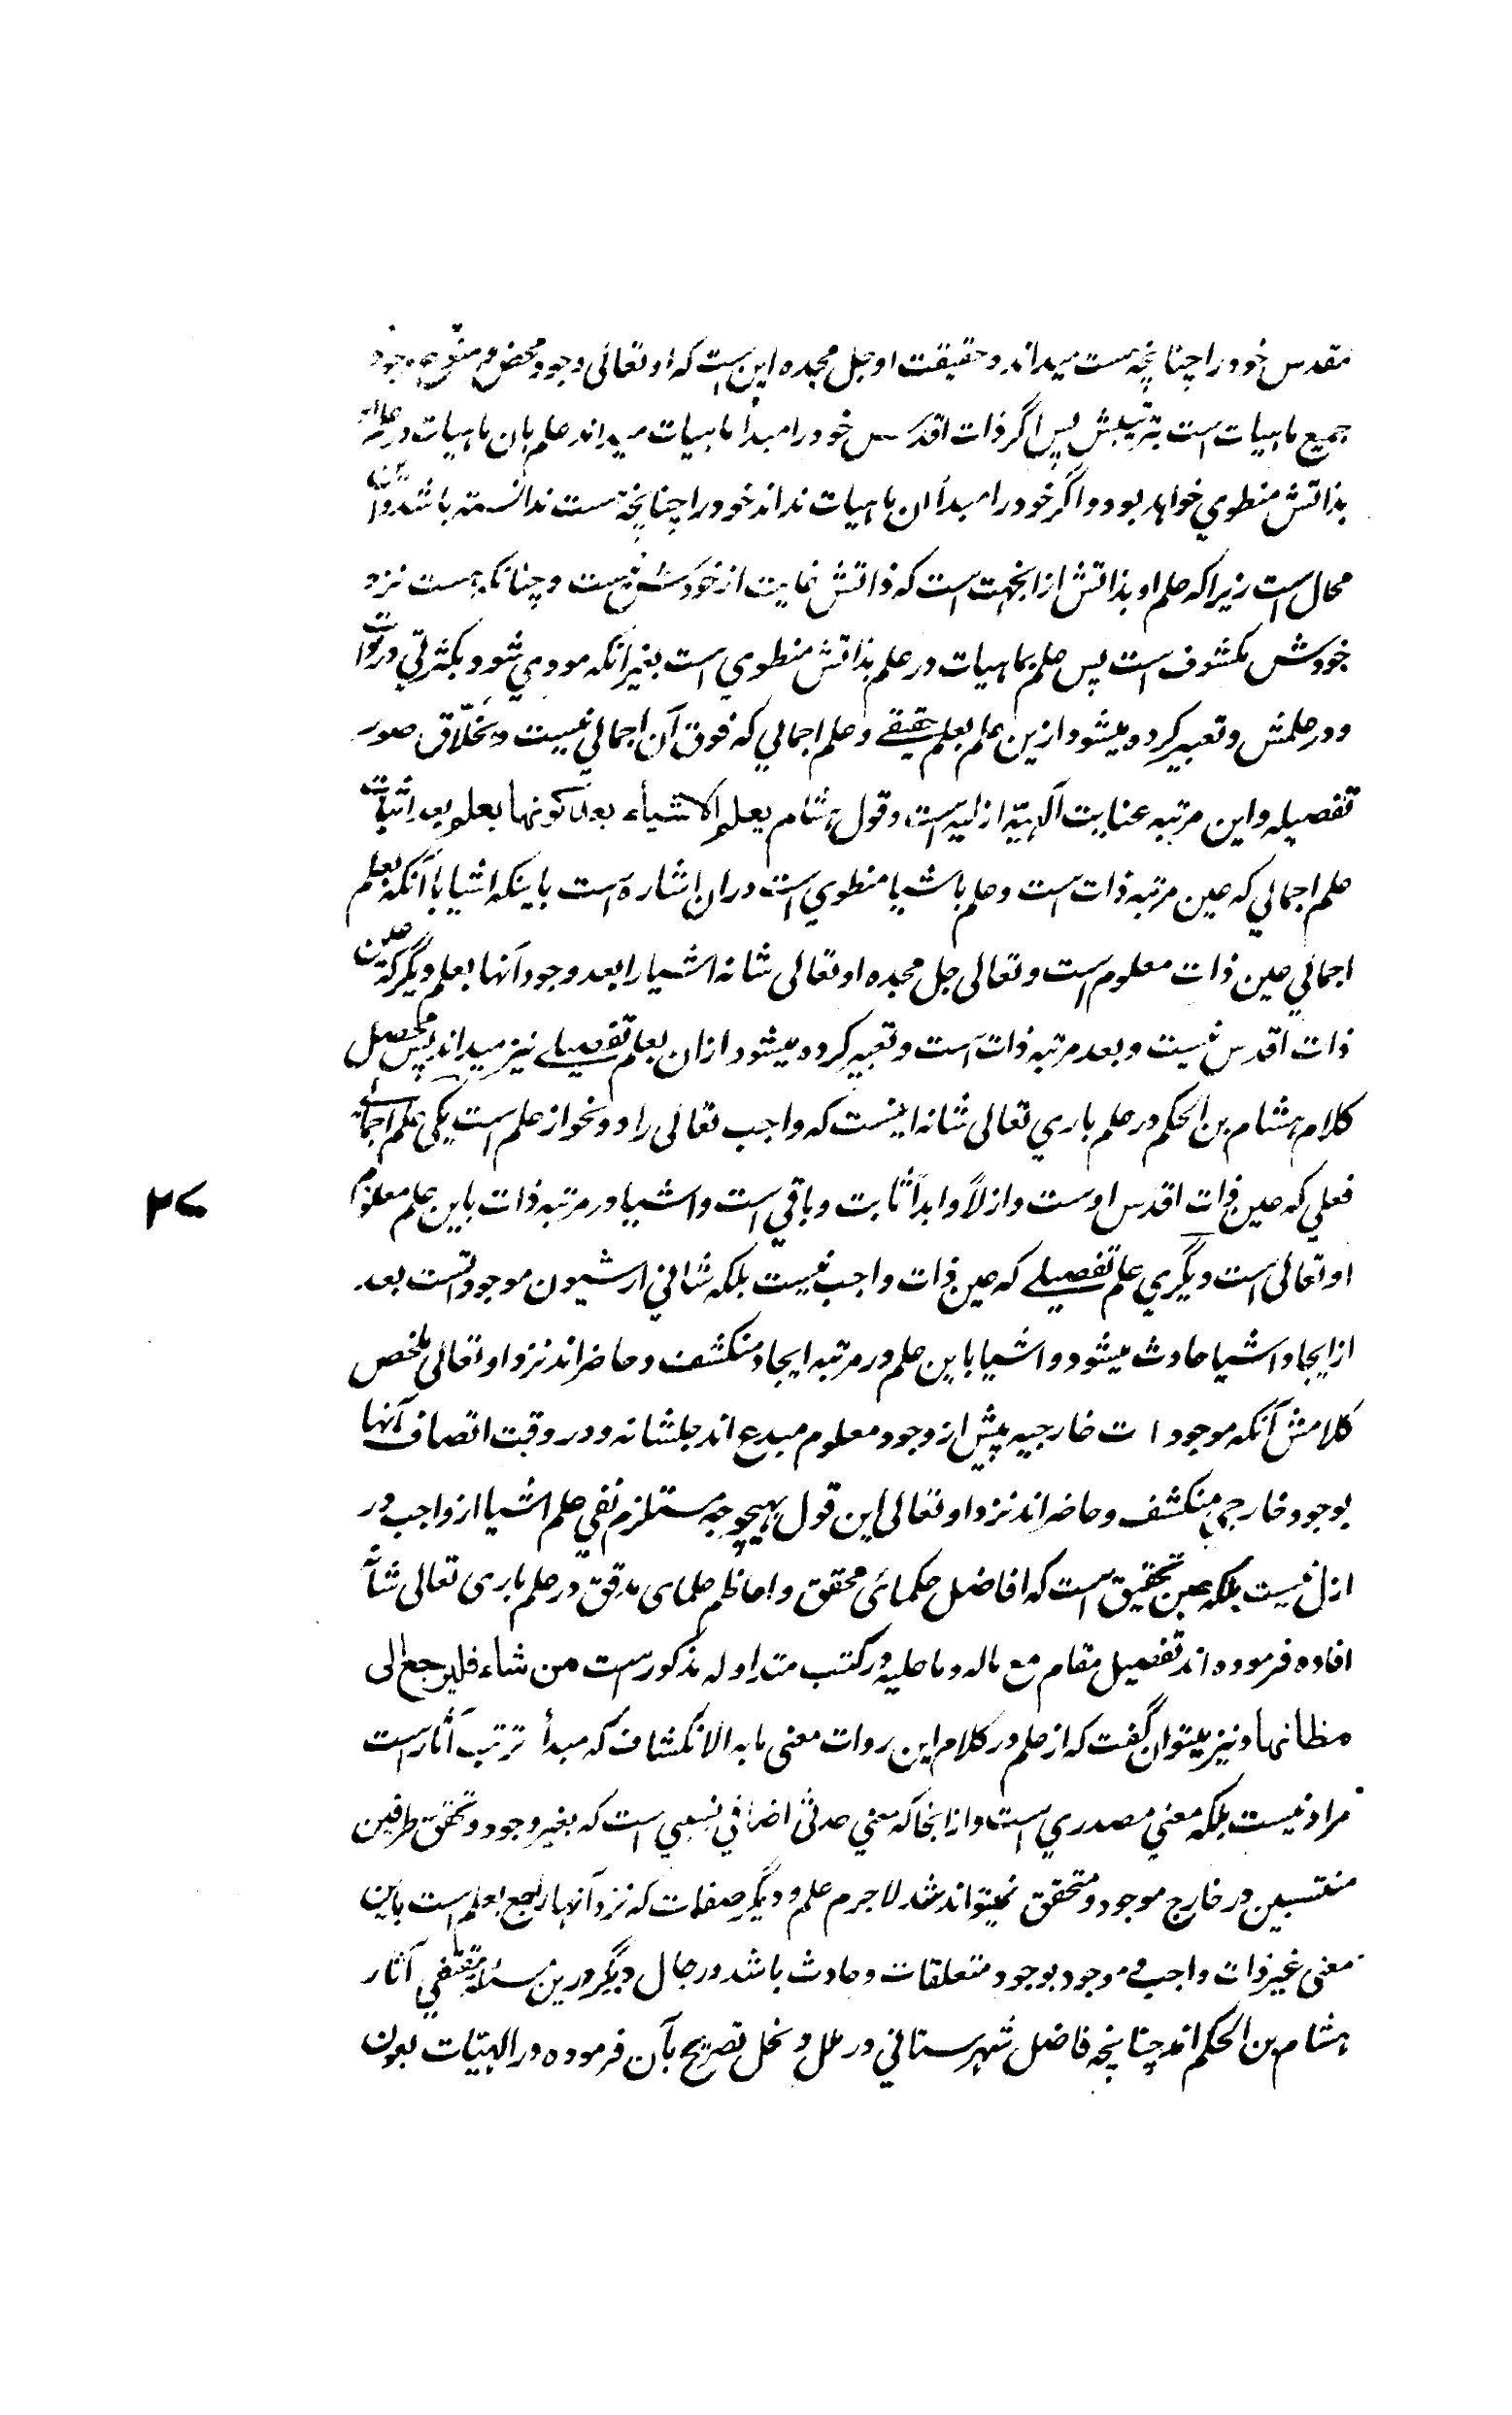 مقدس خود را چنانچه هست میداند و حقیقت او جل مجده این است که او تعالی وجود محض و منبع وجود
جمیع ماهیات است بترتیبش پس اگر ذات اقدس خود را مبدأ ماهیات میداند علم بآن ماهیات در علم
بذاتش منطوي خواهد بود و اگر خود را مبدأ ان ماهیات نداند خود را چنانچه هست ندانسته باشد و این
محال است زیرا که علم او بذاتش ازانجهت است که ذاتش غایت از خودش نیست و چنانکه هست نزد
خودش مکشوف است پس علم بماهیات در علم بذاتش منطوي است بغیر آنکه مودي شود بکثرتي در ذات
و در علمش و تعبیر کرده میشود ازین علم بعلم حقیقے و علم اجمالي که فوق آن اجمالي نیست و بخلّاق صور
تفصیلیه و این مرتبه عنایت آلهیّه ازلیه است و قول هشام یعلم الاشیاء بعد کونها بعلم بعد اثبات
علم اجمالي که عین مرتبه ذات است و علم باشیا منطوي است دران اشاره است باینکه اشیا با آنکه بعلم
اجمالي عین ذات معلوم است و تعالی جل مجده او تعالی شانه اشیا را بعد وجود آنها بعلم دیگر که عین
ذات اقدس نیست و بعد مرتبه ذات است و تعبیر کرده میشود ازان بعلم تفصیلے نیز میداند پس محصل
کلام هشام بن الحکم در علم باري تعالی شانه اینست که واجب تعالی را دو نحو از علم است یکی علم اجمالے
فعلي که عین ذات اقدس اوست و ازلاً و ابداً ثابت و باقي است و اشیا در مرتبه ذات باین علم معلوم
۲۷
او تعالی است و دیگري علم تفصیلے که عین ذات واجب نیست بلکه شاني از شیون موجودتیست بعد
از ایجاد اشیا حادث میشود و اشیا باین علم در مرتبه ایجاد منکشف و حاضر اند نزد او تعالی ملخص
کلامش آنکه موجودات خارجیه پیش از وجود معلوم مبدع اند جلشانه و در وقت اتصاف آنها
بوجود خارجی منکشف و حاضر اند نزد او تعالی این قول بهیچوجه مستلزم نفي علم اشیا از واجب در
ازل نیست بلکه عین تحقیق است که افاضل حکمائی محقق و اعاظم علمای مدقق در علم باری تعالی شانه
افاده فرموده اند تفصیل مقام مع ماله و ما علیه در کتب متداوله مذکور است من شاء فلیرجع الی
مظانها و نیز میتوان گفت که از علم در کلام این روات معنی ما به الانکشاف که مبدأ ترتب آثار است
مراد نیست بلکه معني مصدري است و ازانجا که معني حدثی اضافي نسبي است که بغیر وجود و تحقق طرفین
منتسبین در خارج موجود و متحقق نمیتواند شد لاجرم علم و دیگر صفات که نزد آنها راجع بعلم است باین
معنی غیر ذات واجب و موجود بوجود متعلقات و حادث باشد و رجال دیگر درین مسئله مقتفي آثار
هشام بن الحکم اند چنانچه فاضل شهرستاني در ملل و نحل تصریح بآن فرموده و در الهیّات بعون